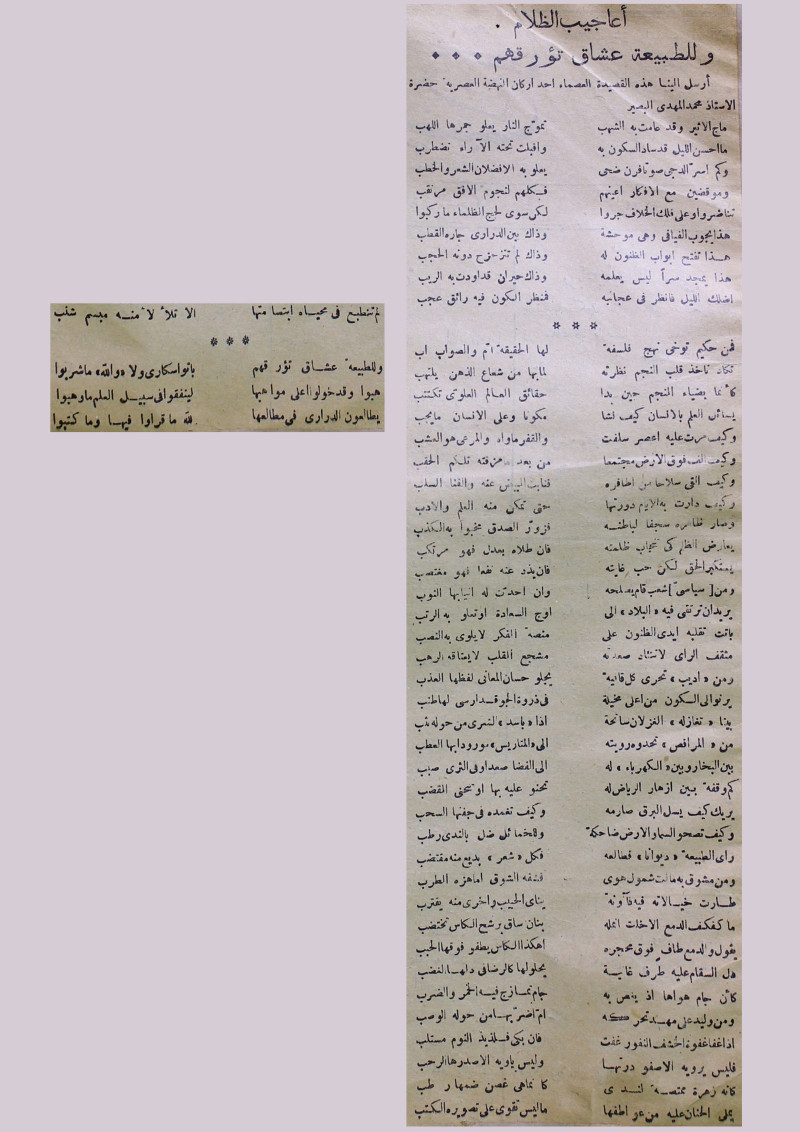 أعاجيب الظلام .
وللطبيعة عشاق تؤرقهم • • •
أرسل الينا هذه القصيدة العصماء احد اركان النهضة العصرية حضرة
الاستاذ محمد المهدى البصير
ماج الاثير وقد عامت به الشهب تموّج النار يعلو جمرها اللهب
ما احسن الليل قد ساد السكون به واقبلت تحته الآراء تضطرب
وكم اسرّ الدجى صوتا فرن ضحى يعلو به الافضلان الشعر والخطب
وموقضين مع الافكار اعينهم فكلهم لنجوم الافق مرتقب
تناشروا وعلى فلك الخلاف جروا لكن سوى لجج الظلماء ما ركبوا
هذا يجوب الفيافى وهى موحشة وذاك بين الدرارى جاره القطب
هذا تفتح ابواب الظنون له وذاك لم تتزحزح دونه الحجب
هذا يمجد سراً ليس يعلمه وذاك حيران قد اودت به الريب
اضلك الليل فانظر فى عجائبه فمنظر الكون فيه رائق عجب
* * *
فمن حكيم توخى نهج فلسفة لها الحقيقة ام والصواب اب
تكاد تاخذ قلب النجم نظرته لما بها من شعاع الذهن يلتهب
كأنما بضياء النجم حين بدا حقائق العالم العلوى تكتتب
يسائل العلم بالانسان كيف نشا مكونا وعلى الانسان مايجب
وكيف مرت عليه اعصر سلفت والقفر ماواه والمرعى هو العشب
وكيف الف فوق الارض مجتمعا من بعد ما مزقته تلكم الحقب
وكيف القى سلاحا من اظافره
وكيف دارت به الايام دورتها حتى تمكن منه العلم والادب
وصار ظاهره سجفا لباطنه فزوّر الصدق مخبوا به الكذب
فان طلاه بعدل فهو مرتكب
يستنكر الحق لكن حب غايته فان يذد عنه نفعا فهو مغتصب
ومن [ سياسىّ ] شعب قام يصلحه وان احدت له انيابها النوب
يريدان ترتقى فيه « البلاد » الى اوج السعادة او تعلو به الرتب
باتت تقلبه ايدى الظنون على منصة الفكر لا يلوى به النصب
مثقف الراى لا تنثاد صعدته مشجع القلب لا يعتاقه الرهب
ومن « اديب » تحرى كل قافية يجلو حسان المعانى لفظها العذب
يرنو الى السكون من اعلى مخيلة فى ذروة الجو قد ارسى لها طنب
بينا « تغازله » الغزلان سانحة اذا « باسد » الشرى من حوله تثب
من « المراقص » تحدوه رويته الى « المتاريس » مورودا بها العطب
بين البخار وبين « الكهرباء » له الى الفضا صعد او فى الثرى صبب
كم وقفة بين ازهار الرياض له تحنو عليه بها او تنحنى القضب
يريك كيف يسل البرق صارمه وكيف تغمده فى جفنها السحب
وكيف تصحو السما والارض ضاحكة وللخمائل ضل بالندى رطب
راى الطبيعة « ديوانا » فطالعه فكل « شعر » بديع منه مقتضب
ومن مشوق به مالت شمول هوى فشفه الشوق اما هزه الطرب
طارت خيالاته فيه فآونة يناى الحبيب واخرى منه يقترب
ما كفكف الدمع الا خلت انمله بنان ساق برشح الكاس تختضب
يقول والدمع طاف فوق محجره اهكذا الكاس يطفو فوقها الحبب
دل السقام عليه طرف غانية
كأن جام هواها اذ يغص به جام تمازج فيه الخمر والضرب
ومن وليد على مهد تحركه ام اضرّ بها من حوله الوصب
اذا غفا غفوة الخشف النفور غفت فان بكى فلذيذ النوم مستلب
فليس يرويه الا صفو درتها وليس ياويه الا صدرها الرحب
كانه زهرة ممتصة لندى كانما هى غصن ضمها رطب
يملى الحنان عليه من عواطفها ما ليس تقوى على تصويره الكتب
لم تنطبع فى محياه ابتسامتها الا تلألا منه مبسم شنب
* * *
وللطبيعة عشاق تؤرقهم باتوا سكارى ولا « والله » ماشربوا
هبوا وقد خولوا اعلى مواهبها لينفقوا فى سبيل العلم ما وهبوا
يطالعون الدرارى فى مطالعها لله ما قراوا فيها وما كتبوا